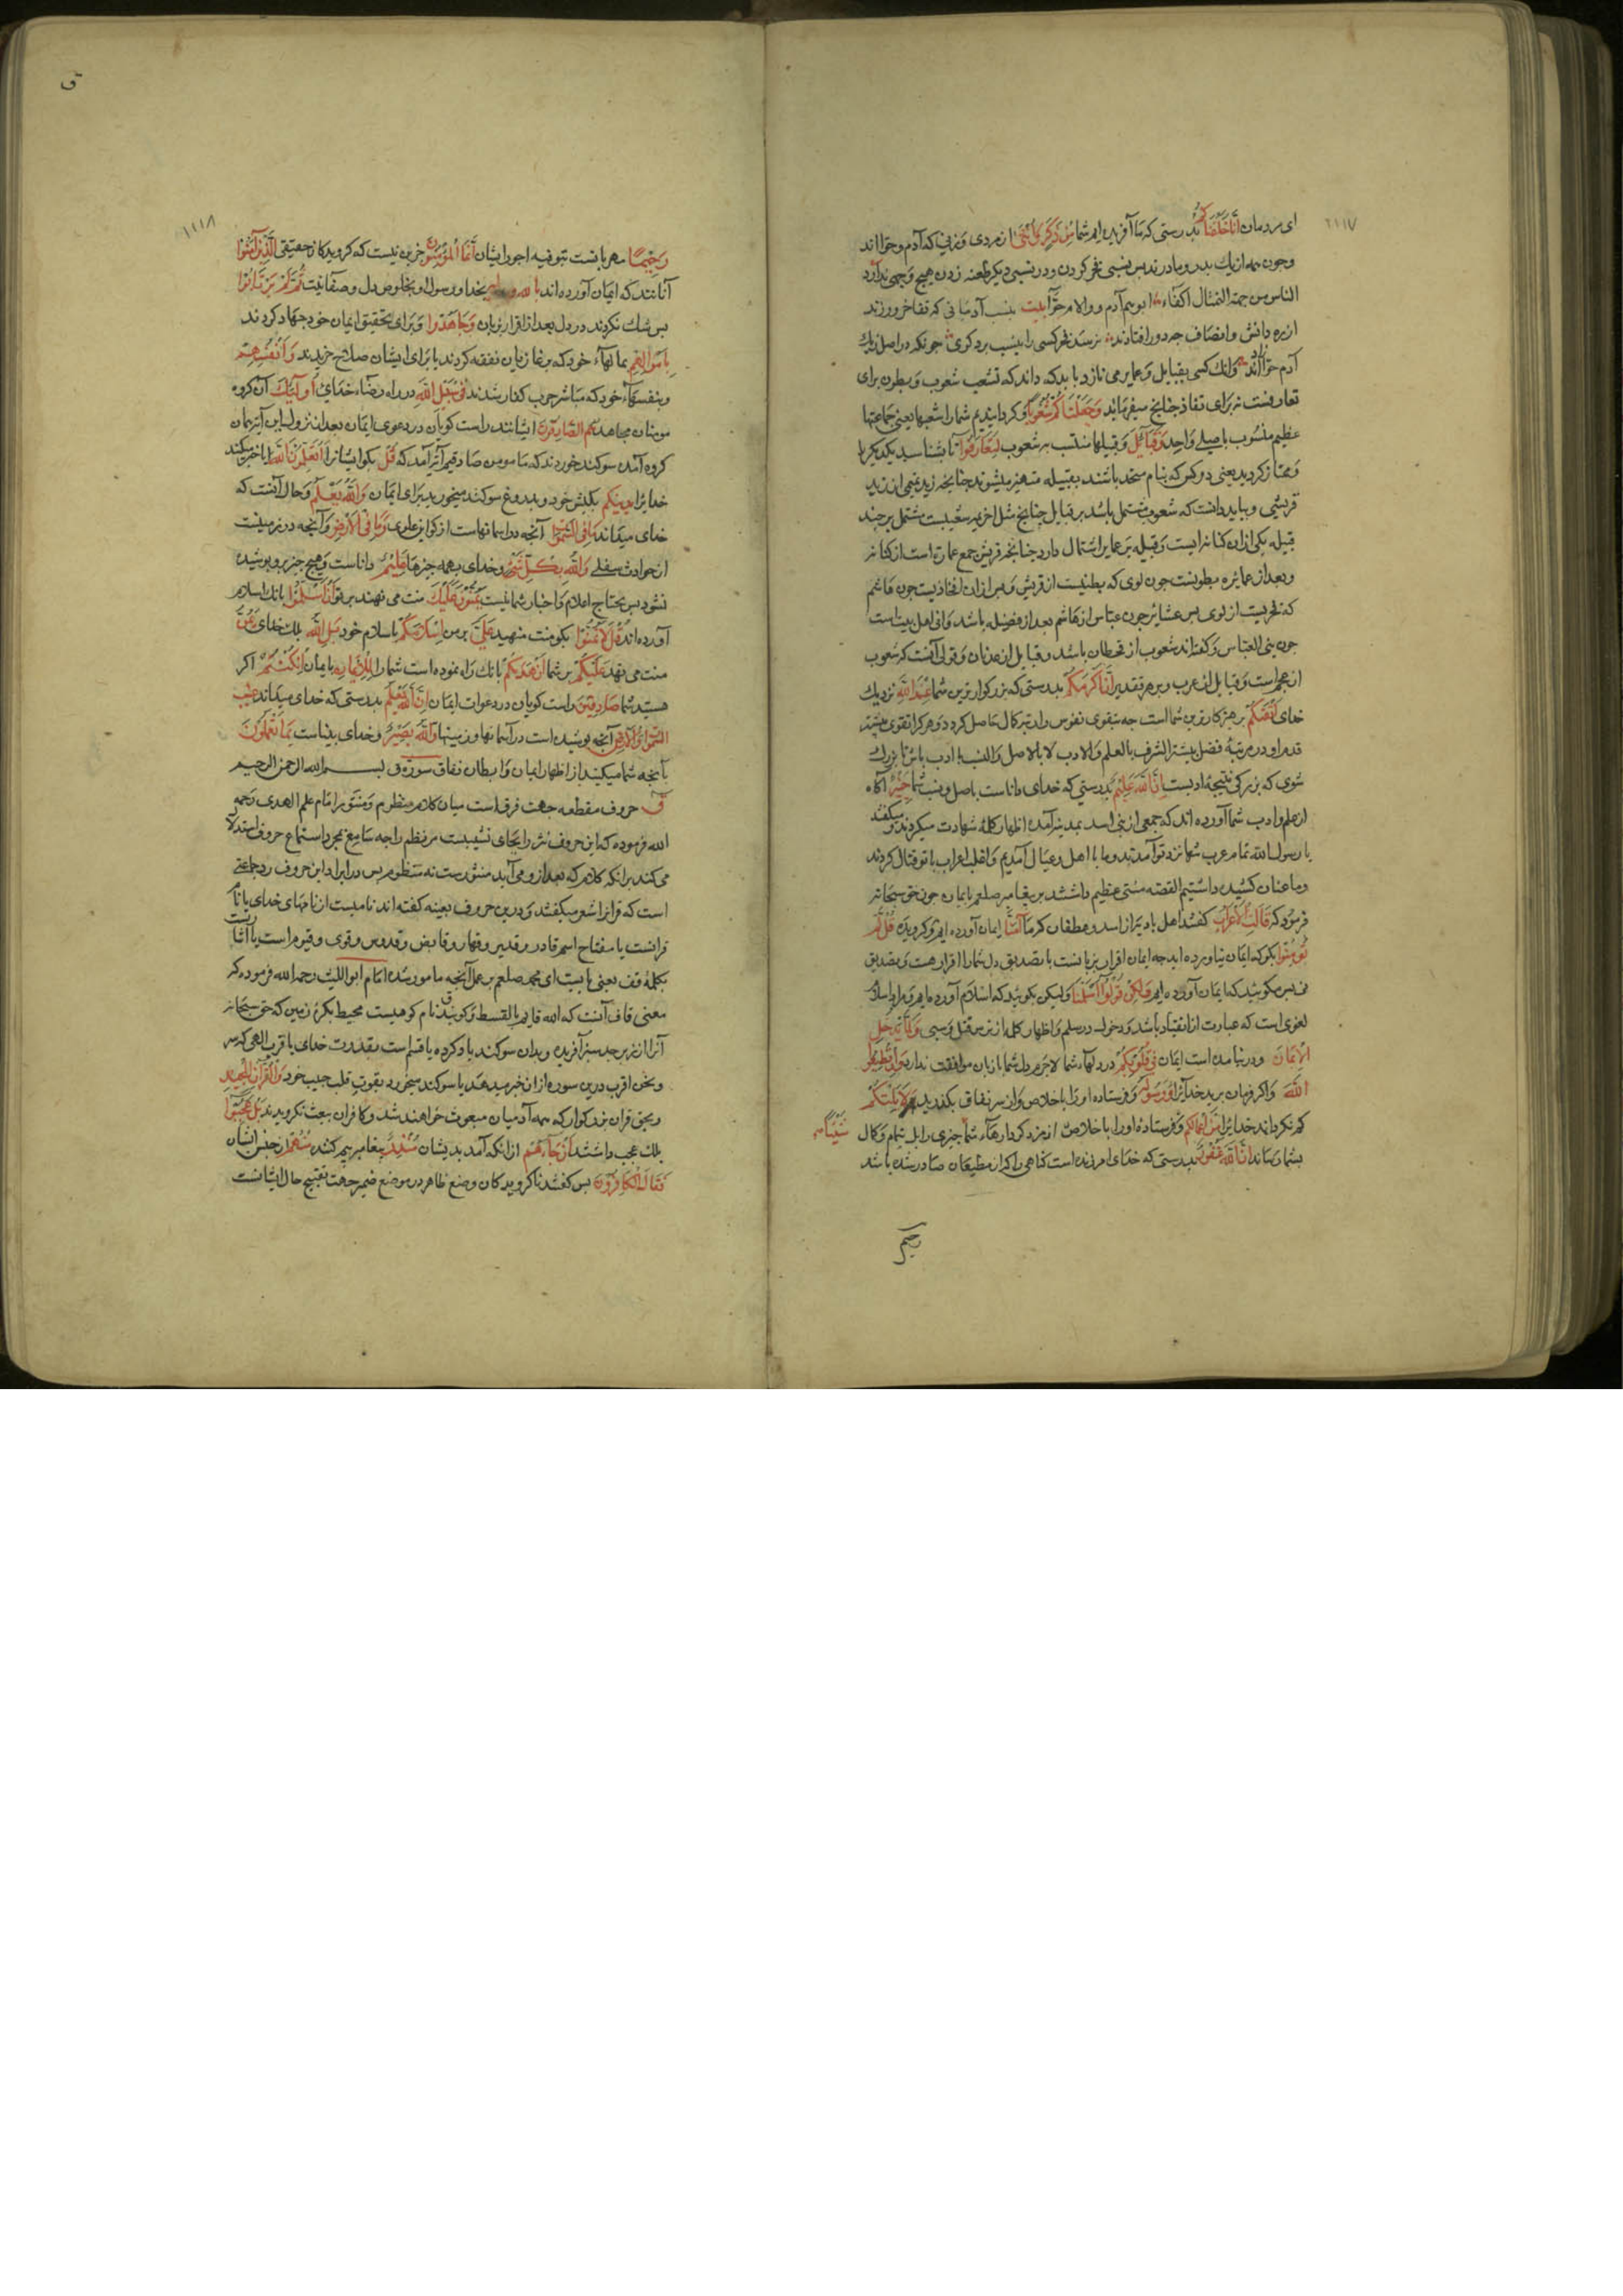 ۱۱۱۷
ای مردمان انا خلقناکم بدرستی که ما آفریدیم شما من ذکر و انثی از مردی و زنی که آدم و حوا اند
و چون همه از یک پدر و مادرند پس بنسبی فخر کردن و در نسبی دیگر طعنه زدن هیچ وجهی ندارد
الناس من جهة التمثال اکفاء ابوهم آدم والام حوا بیت بنسب آدمیانی که تفاخر ورزند
از ره دانش و انصاف چه دور افتادند نرسد فخر کسی را بنسب بر دکری چونکه در اصل ز یک
آدم و حوا زادند و انک کسی بقبایل و عمایر می نازد باید که داند که تشعب شعوب و بطون برای
تعارفست نه برای تفاخر چنانچه میفرماید وجعلناکم شعوبا و کردانیدیم شما را شعبها یعنی جماعتها
عظیم منسوب باصلی واحد وقبائل و قبیلها منتسب بر شعوب لتعارفوا تا بشناسید یکدیگر را
و ممتاز کردید یعنی دو کس که بنام متحد باشند بقبیله متمیز میشوند چنانچه زید تمیمی از زید
قریشی و بباید دانست که شعوب مشتمل باشد بر قبایل چنانچ مثل خزیمه شعبیست مشتمل بر چند
قبیله یکی از ان کنانه است و قبیله بر عمایر اشتمال دارد چنانچه قریش جمع عمارة است از کنانه
و بعد از عمایره بطونست چون لوی که بطنیست از قریش و پس از ان افخاذیست چون هاشم
که فخریست از لوی پس عشایر چون عباس از هاشم بعد از فصیله باشد و انی اهل بیت است
چون بنی العباس و کفته اند شعوب از قحطان باشد و قبایل از عدنان و قولی آنست که شعوب
از عجم است و قبایل از عرب و بر هر تقدیر ان اکرمکم بدرستی که بزرکوارترین شما عند الله نزدیک
خدای اتقیکم پرهیزکارترین شما است چه بتقوی نفوس را مرتبه کمال حاصل کردد و هر که را تقوی بیشتر
قدم او در مرتبهٔ فضل پیشتر الشرف بالعلم والادب لا بالاصل والنسب با ادب باش تا بزرک
شوی که بزرکی نتیجهٔ ادبست ان الله علیم بدرستی که خدای داناست باصل و نسب شما خبیر آکاه
از علم و ادب شما آورده اند که جمعی از بنی اسد بمدینه آمده اظهار کلمهٔ شهادت میکردند و میکفتند
یا رسول الله تمام عرب تنها نزد تو آمدند و ما با اهل و عیال آمدیم و اغلب اعراب با تو قتال کردند
و ما عنان کشیده داشتیم القصه منتی عظیم داشتند بر پیغامبر صلعم بایمان چون حق سبحانه
فرمود که قالت الاعراب کفتند اهل بادیه از اسد و غطفان که ما آمنا ایمان آورده ایم و کرویده قل لم
تؤمنوا بکو که ایمان نیاورده اید چه ایمان اقرار بزبانست با تصدیق دل شما را اقرار هست و تصدیق
نی پس مکویید که ایمان آورده ایم ولکن قولوا اسلمنا ولیکن بکویید که اسلام آورده ایم و مراد اسلام
لغوی است که عبارت از انقیاد باشد و دخول در سلم و اظهار کلمه از ترس قتل و سبی ولما یدخل
الایمان و در نیامده است ایمان فی قلوبکم در دلهاء شما لاجرم دل شما با زبان موافقت ندارد وان تطیعوا
الله و اکر فرمان برید خدایرا ورسوله و فرستاده او را باخلاص و از سر نفاق بکذرید لا یلتکم
کم نکرداند خدا یرا من اعمالکم و فرستاده او را باخلاص از مزد کردارهاء شما چیزی را بل تمام و کمال شیئا
بشما رساند ان الله غفور بدرستی که خدای امرزنده است کناهی را که از مطیعان صادر شده باشد
رحیم
ق
۱۱۱۸
رحیما مهربانست بتوفیه اجور ایشان انما المؤمنون جز این نیست که کرویدکان حقیقی الذین آمنوا
آنانند که ایمان آورده اند بالله ورسوله بخدا و رسول او بخلوص دل و صفا نیت ثم لم یرتابوا
پس شک نکردند در دل بعد از اقرار بزبان وجاهدوا و برای تحقیق ایمان خود جهاد کردند
باموالهم بمالهاء خود که بر غازیان نفقه کردند یا برای ایشان سلاح خریدند وانفسهم
و بنفسهاء خود که مباشر حرب کفار شدند فی سبیل الله در راه رضاء خدای اولئک آن کروه
مومنان مجاهد هم الصادقون ایشانند راست کویان در دعوی ایمان بعد از نزول این آیت همان
کروه آمده سوکند خوردند که ما مومن صادقیم آیت آمد که قل بکو ایشانرا اتعلمون الله آیا خبر میکنید
خدایرا بدینکم بکیش خود و بدروغ سوکند میخورید برای ایمان والله یعلم و حال آنست که
خدای میداند ما فی السموات آنچه در اسمانهاست از کواین علوی وما فی الارض و آنچه در زمینست
از حوادث سفلی والله بکل شیء و خدای بهمه چیزها علیم داناست و هیچ چیز برو پوشیده
نشود پس محتاج اعلام و اخبار شما نیست یمنون علیک منت می نهند بر تو ان اسلموا بانک اسلام
آورده اند قل لا تمنوا بکو منت منهید علی بر من اسلامکم باسلام خود بل الله بلک خدای یمن
منت می نهد علیکم بر شما ان هدیکم بانک راه نموده است شما را للایمان بایمان ان کنتم اکر
هستید شما صادقین راست کویان در دعوات ایمان ان الله یعلم بدرستی که خدای میداند غیب
السموات والارض آنچه پوشیده است در آسمانها و زمینها والله بصیر و خدای بیناست بما تعملون
بآنچه شما میکنید از اظهار ایمان و ابطان نفاق سورة ق بسم الله الرحمن الرحیم
ق حروف مقطعه جهت فرق است میان کلام منظوم و منثور امام علم الهدی رحمه
الله فرموده که این حروف نثر را بجای تشبیبست مر نظم را چه سامع بمجرد استماع حروف استدلال
می کند برانکه کلام که بعد ازو می آید منثورست نه منظوم پس در ایراد این حروف رد جماعتی
است که قرانرا شعر میکفتند و درین حروف بعینه کفته اند نامیست از نامهای خدای یا نام
قرانست یا مفتاح اسم قادر و قدیر و قهار و قابض و قدوس و قوی و قیوم است یا اشارتست
بکلمهٔ قف یعنی بایست ای محمد صلعم بر عمل آنچه مامور شده امام ابو اللیث رحمه الله فرموده که
معنی قاف آنست که الله قایم بالقسط و کویند ق نام کوهیست محیط بکرهٔ زمین که حق سبحانه
آنرا از زبرجد سبز آفریده و بدان سوکند یاد کرده یا قسم است بقدرت خدای یا قرب الهی که سر
و نحن اقرب درین سوره از ان خبر میدهد یا سوکند میخورد بقوت قلب حبیب خود والقرآن المجید
و بحق قران بزرکوار که همه آدمیان مبعوث خواهند شد و کافران ببعث نکرویدند بل عجبوا
بلک عجب داشتند ان جاءهم از انکه آمد بدیشان منذر پیغامبر بیم کننده منهم از جنس ایشان
فقال الکافرون پس کفتند ناکرویدکان وضع ظاهر در موضع ضمیر جهت تقبیح حال ایشانست